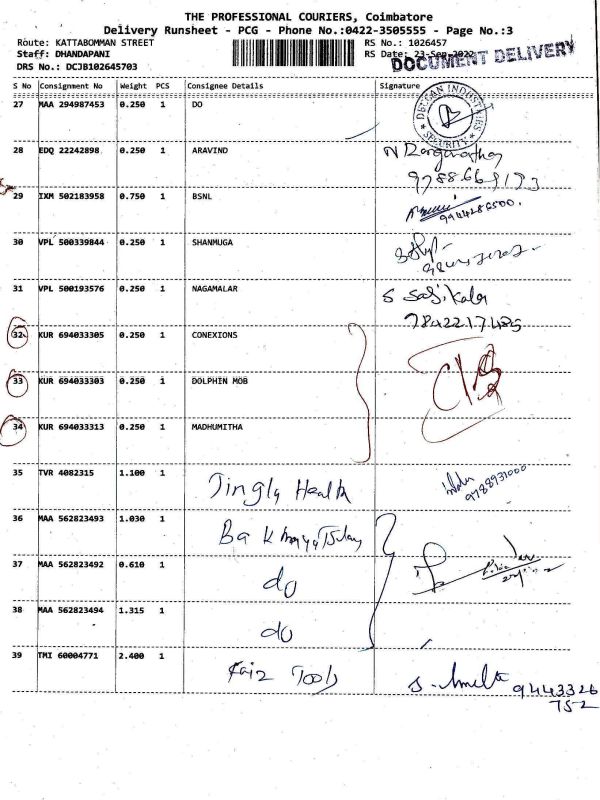 THE PROFESSIONAL COURIERS, Coimbatore
Delivery Runsheet - PCG - Phone No.:0422-3505555 - Page No.:3
Route: KATTABOMMAN STREET RS No.: 1026457
Staff: DHANDAPANI RS Date: 23-Sep-2022
DOCUMENT DELIVERY
DRS No.: DCJB102645703
S No Consignment No Weight PCS Consignee Details Signature
27 MAA 294987453 0.250 1 DO
INDUSTRIES SECURITY
28 EDQ 22242898 0.250 1 ARAVIND
29 IXM 502183958 0.750 1 BSNL
9944286500.
30 VPL 500339844 0.250 1 SHANMUGA
31 VPL 500193576 0.250 1 NAGAMALAR S Sasikala
7842217485
32 KUR 694033305 0.250 1 CONEXIONS
33 KUR 694033303 0.250 1 DOLPHIN MOB
34 KUR 694033313 0.250 1 MADHUMITHA
35 TVR 4082315 1.100 1 Jingly Health
9788931000
36 MAA 562823493 1.030 1
37 MAA 562823492 0.610 1 do
38 MAA 562823494 1.315 1 do
39 TMI 60004771 2.400 1 Faiz Tools
9443326
752